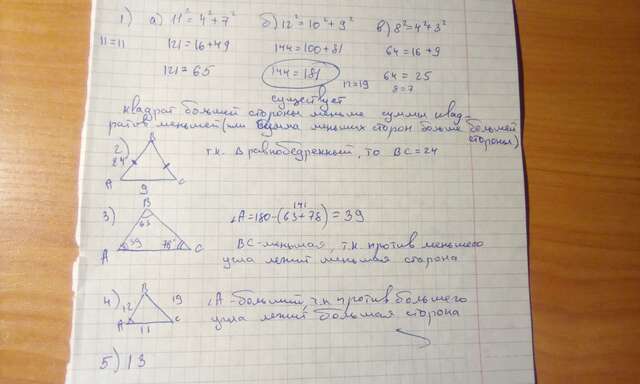 1) а) 11² = 4² + 7² б) 12² = 10² + 9² в) 8² = 4² + 3²
11 = 11 121 = 16 + 49 144 = 100 + 81 64 = 16 + 9
121 = 65 144 = 181 12 = 19 64 = 25
8 = 7
существует
квадрат большей стороны меньше суммы квад-
ратов меньшей (или сумма меньших сторон больше большей
стороны)
2) B
24 т.к. Δ равнобедренный, то BC = 24
A 9 C
3) B 141
63 ∠A = 180 - (63 + 78) = 39
39 78°
A C
BC - меньшая, т.к. против меньшего
угла лежит меньшая сторона
4) B
12 19 ∠A - больший, т.к против большего
A 11 C угла лежит большая сторона
5) 13